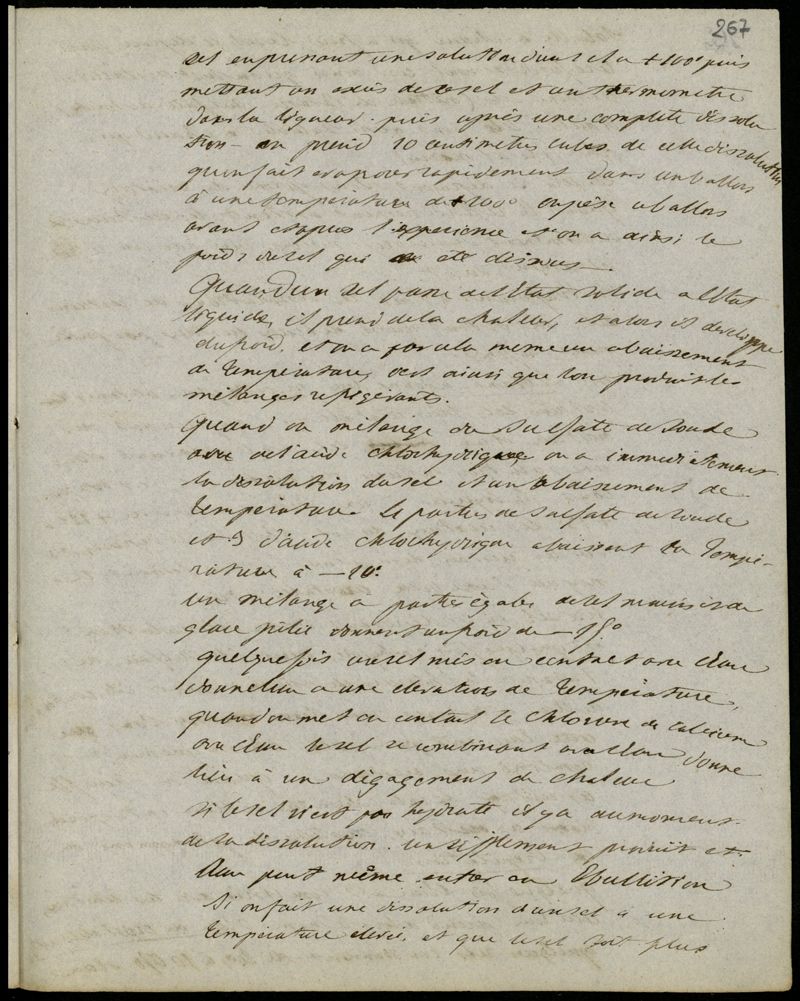 267
sel en prenant une solution d'un sel a +100° puis
mettant un excès de ce sel et un thermometre
dans la liqueur. puis après une complete dissolu
tion – on prend 10 centimetres cubes de cette dissolution
qu'on fait evaporer rapidement dans un ballon
à une temperature de +100° on pèse ce ballon
avant et apres l'experience et on a ainsi le
poids du sel qui a été dissous –
Quand un sel passe de l'Etat solide a l'Etat
liquide, il prend de la chaleur, et alors il developpe
du froid. et on a par cela meme un abaissement
de temperature, c'est ainsi que l'on produit les
mélanges refrigerants.
Quand on mélange du sulfate de soude
avec de l'acide chlorhydrique on a immediatement
la dissolution du sel et un abaissement de
temperature. parties de sulfate de soude
et d'acide chlorhydrique abaissent la tempé-
rature à –10°.
un mélange a parties égales de sel marin et de
glace pilée donnent un froid de –15°
quelquefois un sel mis en contact avec l'eau
donne lieu a une elevation de température,
quand on met en contact le chlorure de calcium
avec l'eau le sel se combinant avec l'eau donne
lieu à un dégagement de chaleur
si le sel n'est pas hydraté il y a au moment
de la dissolution. un sifflement produit et
l'eau peut même entrer en Ebullition
si on fait une dissolution d'un sel à une
température elevée, et que le sel soit plus